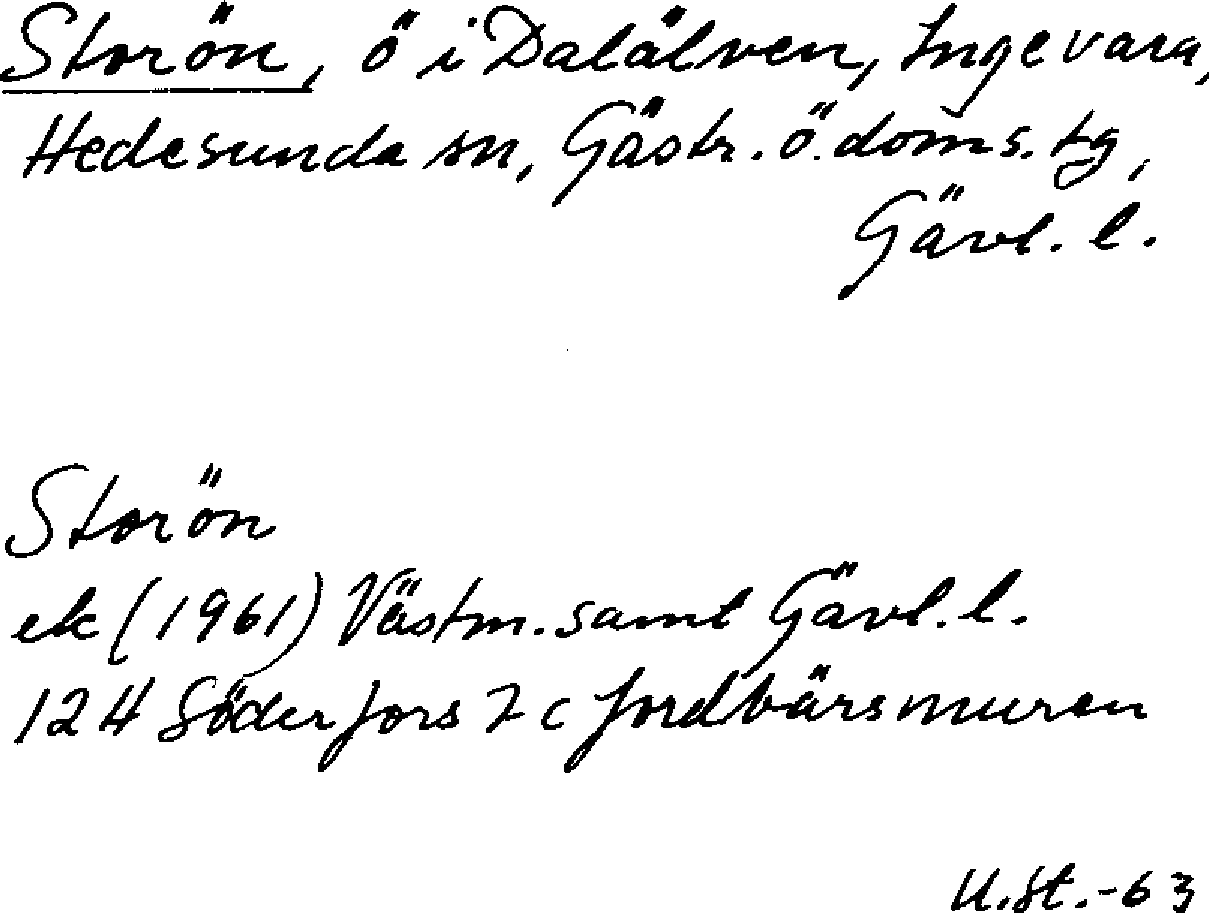 Storön, ö i Dalälven, Ingevara,
Hedesunda sn, Gästr. ö. doms. tg,
Gävl. l.
Storön
ek (1961) Västm. samt Gävl. l.
124 Söderfors 7 c Jordbärsmuren
U.St.-63